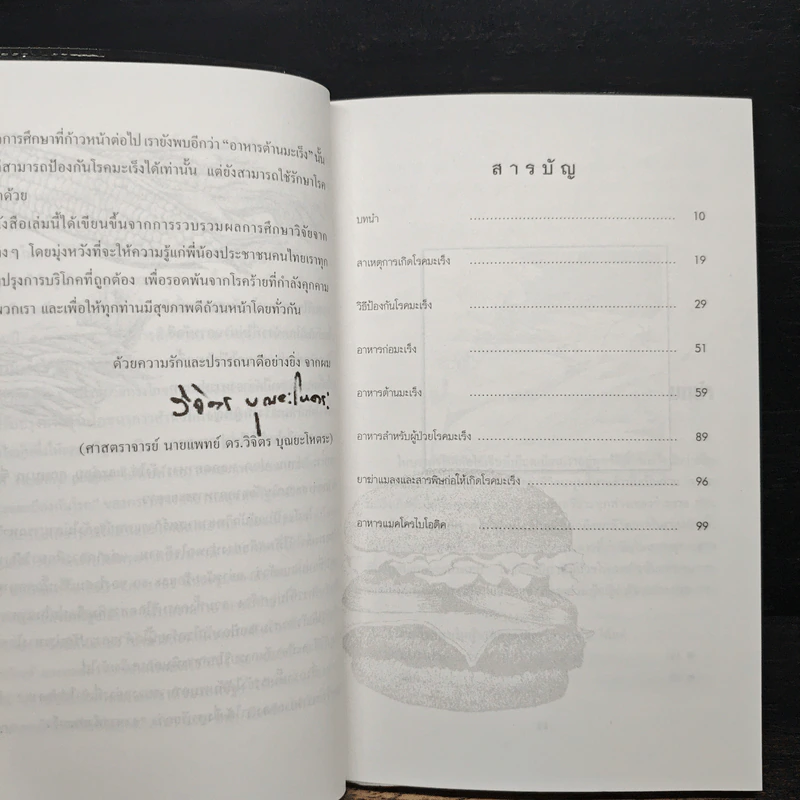 การศึกษาที่ก้าวหน้าต่อไป เรายังพบอีกว่า “อาหารต้านมะเร็ง” นั้น
สามารถป้องกันโรคมะเร็งได้เท่านั้น แต่ยังสามารถใช้รักษาโรค
ด้วย
เล่มนี้ได้เขียนขึ้นจากการรวบรวมผลการศึกษาวิจัยจาก
ๆ โดยมุ่งหวังที่จะให้ความรู้แก่พี่น้องประชาชนคนไทยเราทุก
การบริโภคที่ถูกต้อง เพื่อรอดพันจากโรคร้ายที่กำลังคุกคาม
พวกเรา และเพื่อให้ทุกท่านมีสุขภาพดีถ้วนหน้าโดยทั่วกัน
ด้วยความรักและปรารถนาดีอย่างยิ่ง จากผม
วิจิตร บุณยะโหตระ
(ศาสตราจารย์ นายแพทย์ ดร.วิจิตร บุณยะโหตระ)
สารบัญ
บทนำ 10
สาเหตุการเกิดโรคมะเร็ง 19
วิธีป้องกันโรคมะเร็ง 29
อาหารก่อมะเร็ง 51
อาหารต้านมะเร็ง 59
อาหารสำหรับผู้ป่วยโรคมะเร็ง 89
ยาฆ่าแมลงและสารพิษก่อให้เกิดโรคมะเร็ง 96
อาหารแมคโครไบโอติค 99